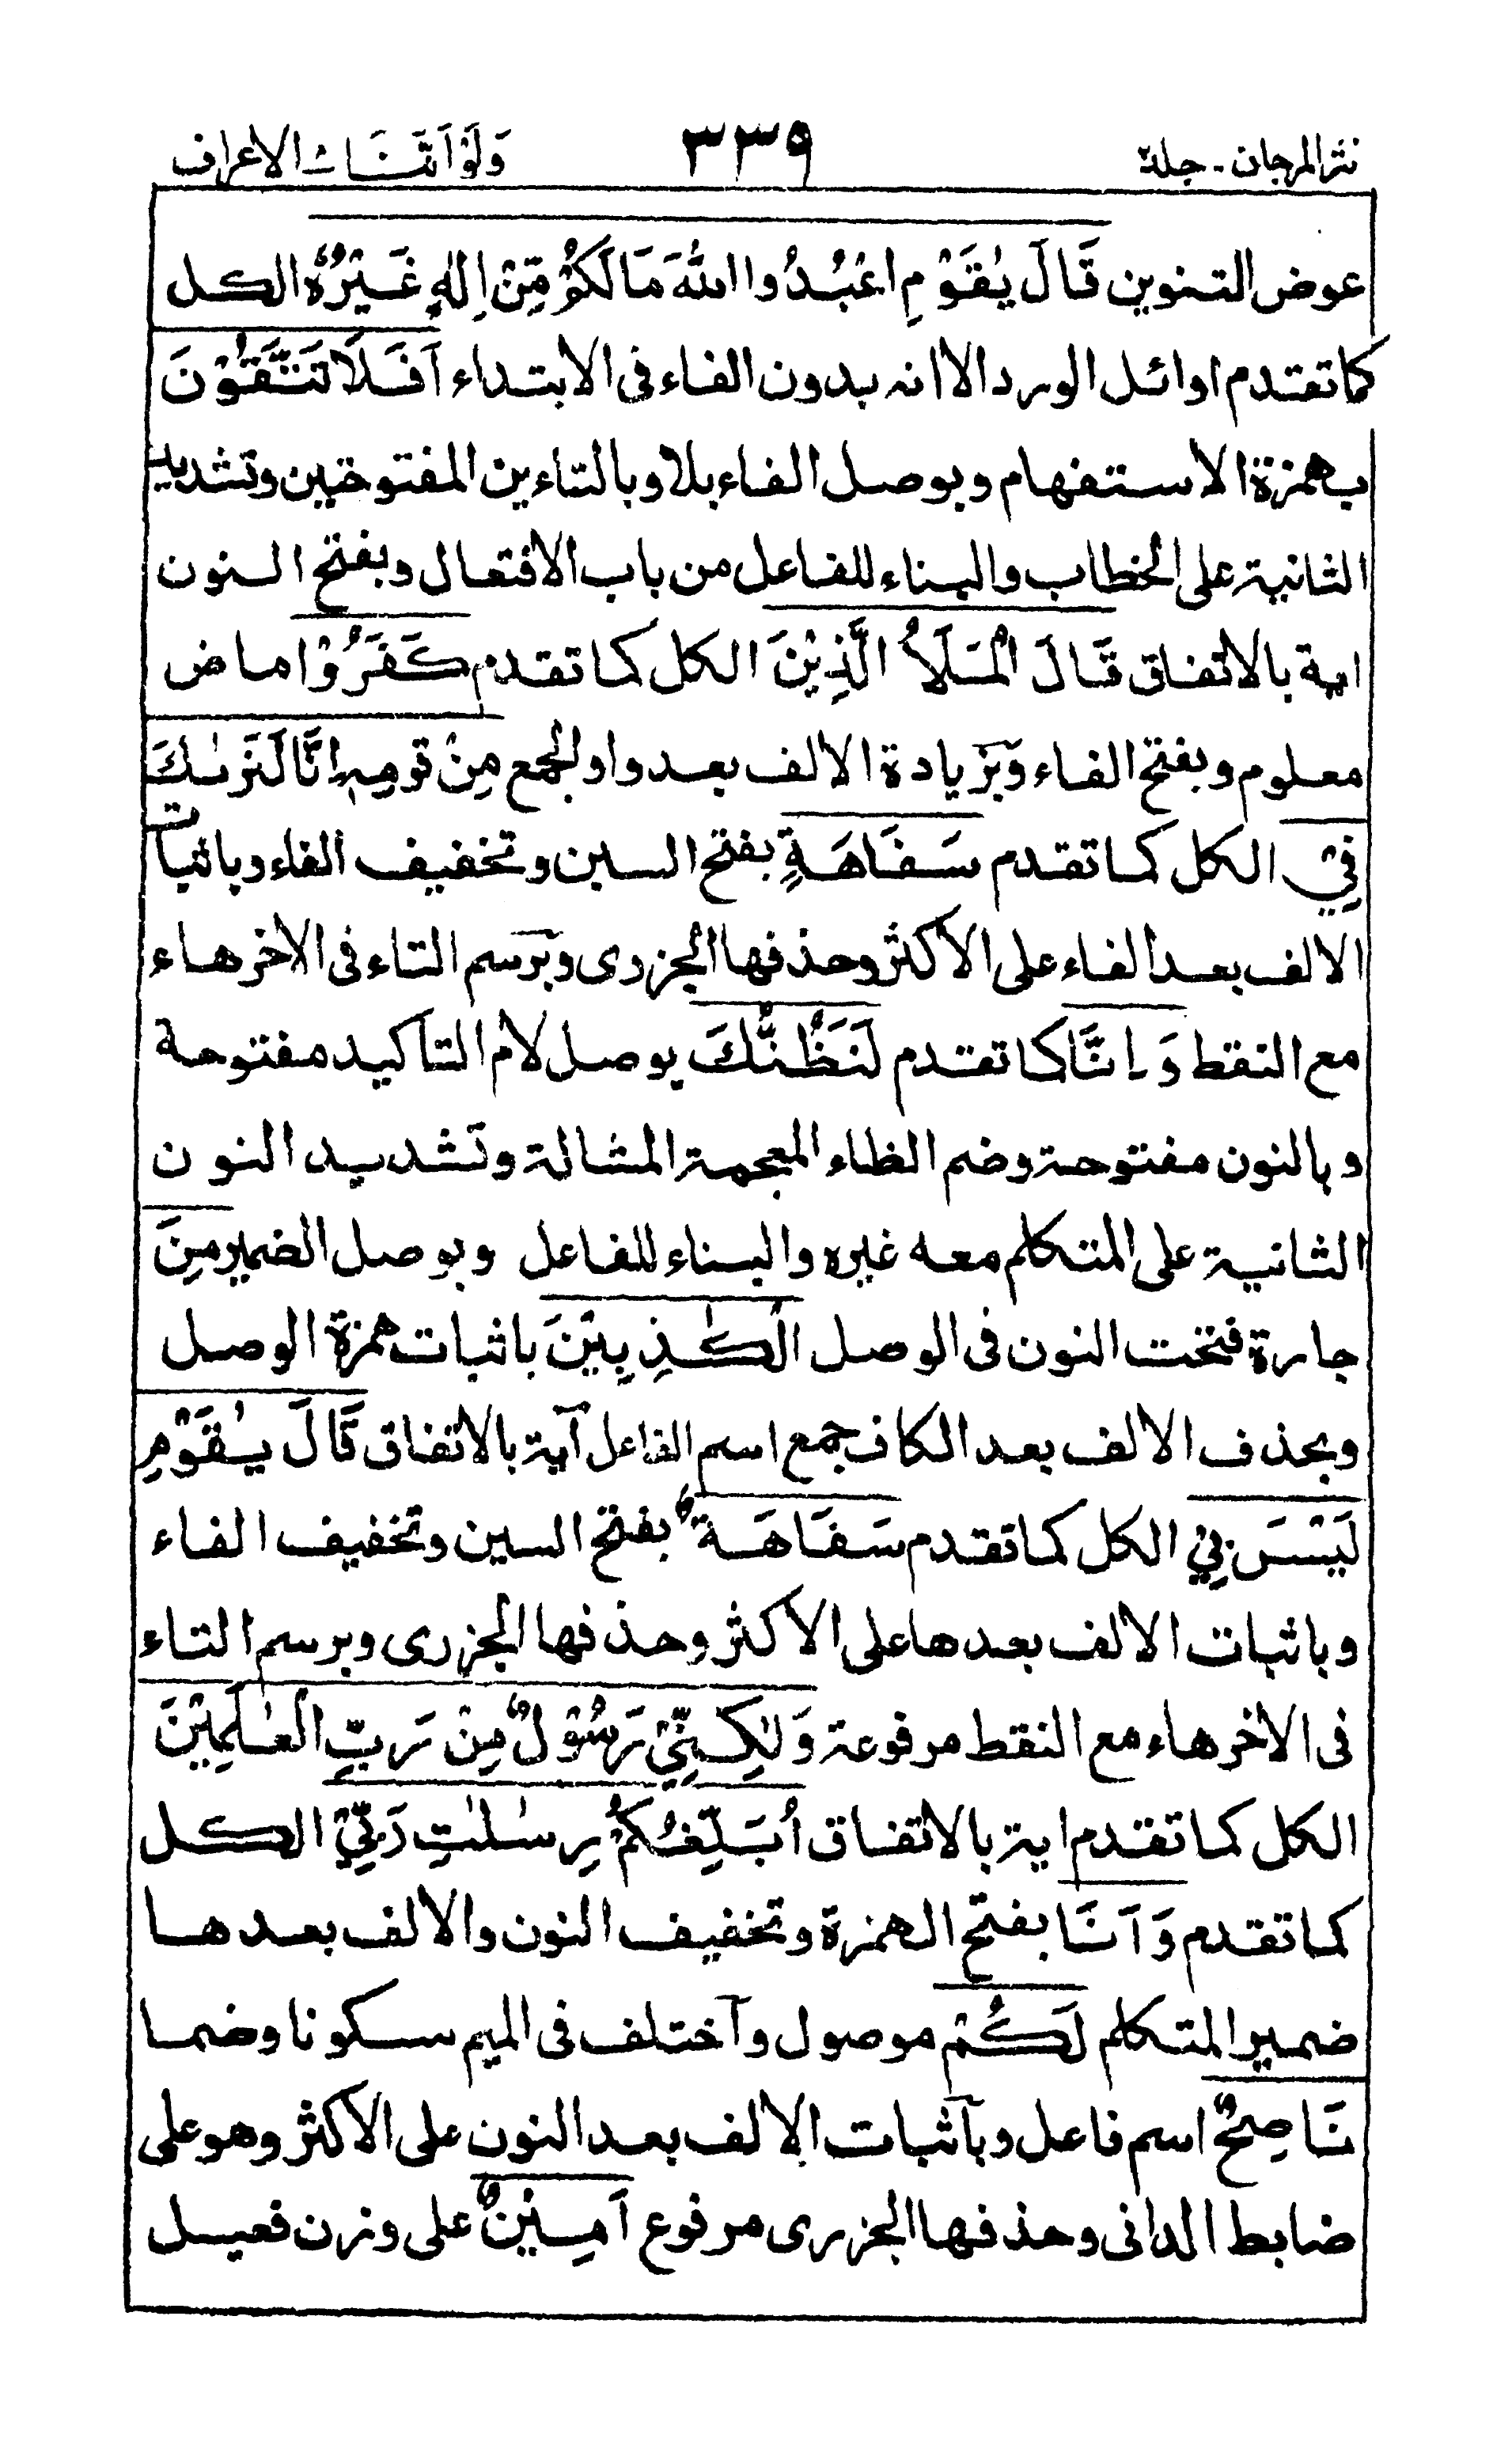 نثر المرجان - جلد ٢ ٣٣٩ وَلَوْ اَنَّنَا ٨ الاعراف
عوض التنوين قَالَ يٰقَوْمِ اعْبُدُوا اللّٰهَ مَا لَكُمْ مِّنْ اِلٰهٍ غَيْرُهٗ الكل
كما تقدم اوائل الورد الا انه بدون الفاء فى الابتداء اَفَلَا تَتَّقُوْنَ
بهمزة الاستفهام وبوصل الفاء بلا وبالتاءين المفتوحتين وتشديد
الثانية على الخطاب والبناء للفاعل من باب الافتعال وبفتح النون
اية بالاتفاق قَالَ الْمَلَاُ الَّذِيْنَ الكل كما تقدم كَفَرُوْا ماض
معلوم وبفتح الفاء وَبزيادة الالف بعد واو الجمع مِنْ قومِهٖ اِنَّا لَنَرٰىكَ
فِيْ الكل كما تقدم سَفَاهَةٍ بفتح السين وتخفيف الفاء وباثبات
الالف بعد الفاء على الاكثر وحذفها الجزرى وبَرسم التاء فى الاخر هاء
مع النقط وَاِنَّا كما تقدم لَنَظُنُّكَ بوصل لام التاكيد مفتوحة
وبالنون مفتوحة وضم الظاء المعجمة المشالة وتشديد النون
الثانية على المتكلم معه غيره والبناء للفاعل وبوصل الضمير مِنَ
جارة فتحت النون فى الوصل الْكٰذِبِيْنَ باثبات همزة الوصل
وبحذف الالف بعد الكاف جمع اسم الفاعل آية بالاتفاق قَالَ يٰقَوْمِ
لَيْسَ بِيْ الكل كما تقدم سَفَاهَةٌ بفتح السين وتخفيف الفاء
وباثبات الالف بعدها على الاكثر وحذفها الجزرى وبرسم التاء
فى الاخر هاء مع النقط مرفوعة وَلٰكِنِّيْ رَسُوْلٌ مِنْ رَبِّ الْعٰلَمِيْنَ
الكل كما تقدم اية بالاتفاق اُبَلِّغُكُمْ رِسٰلٰتِ رَبِّيْ الكل
كما تقدم وَاَنَا بفتح الهمزة وتخفيف النون والالف بعدها
ضمير المتكلم لَكُمْ موصول وآختلف فى الميم سكونا وضما
نَاصِحٌ اسم فاعل وبآثبات الالف بعد النون على الاكثر وهو على
ضابط الدانى وحذفها الجزرى مرفوع اَمِيْنٌ على وزن فعيل